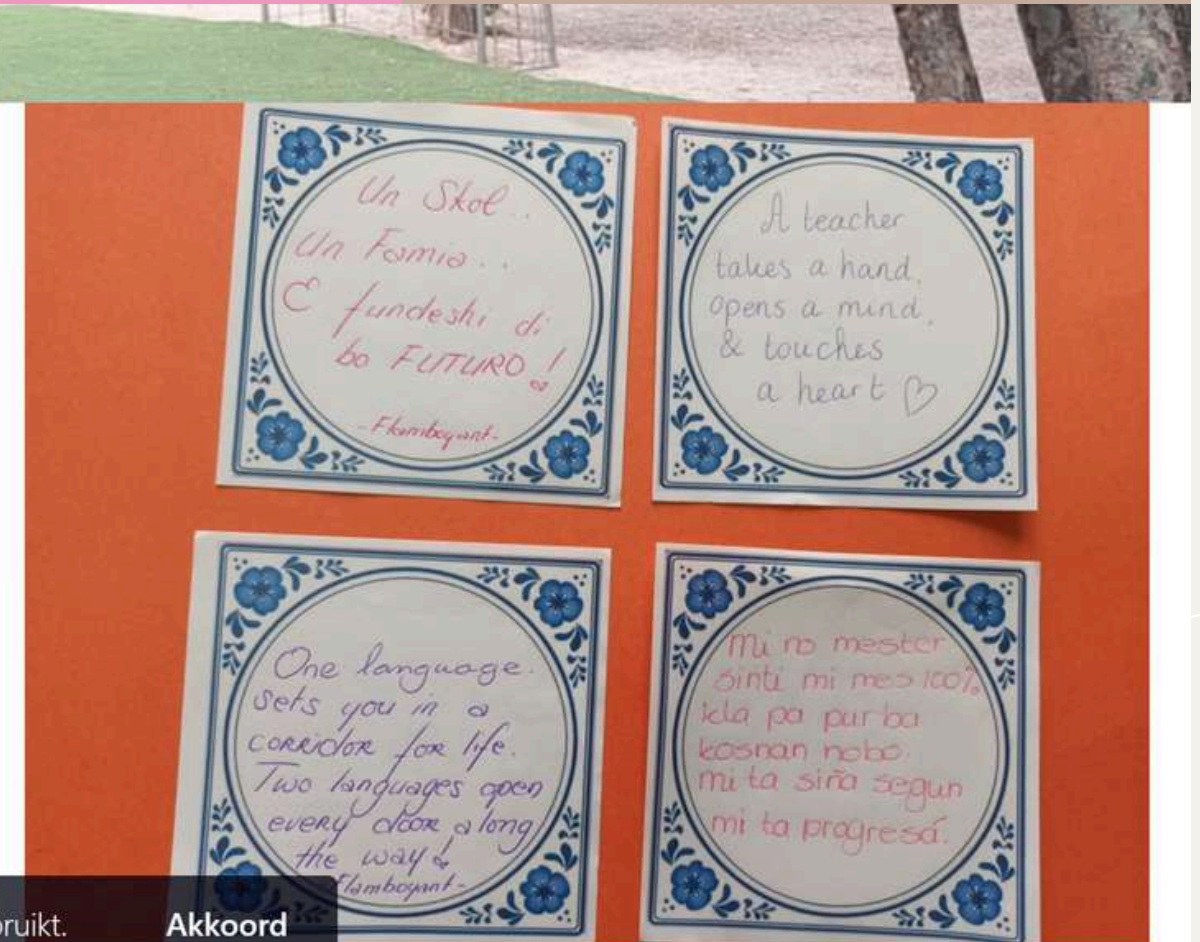 Un Skol..
Un Famia..
E fundeshi di
bo FUTURO!
- Flamboyant -
A teacher
takes a hand,
opens a mind,
& touches
a heart
One language
sets you in a
corridor for life.
Two languages open
every door along
the way!
Flamboyant -
Mi no mester
sinti mi mes 100%
kla pa purba
kosnan nobo.
mi ta siña segun
mi ta progresá.
bruikt.
Akkoord